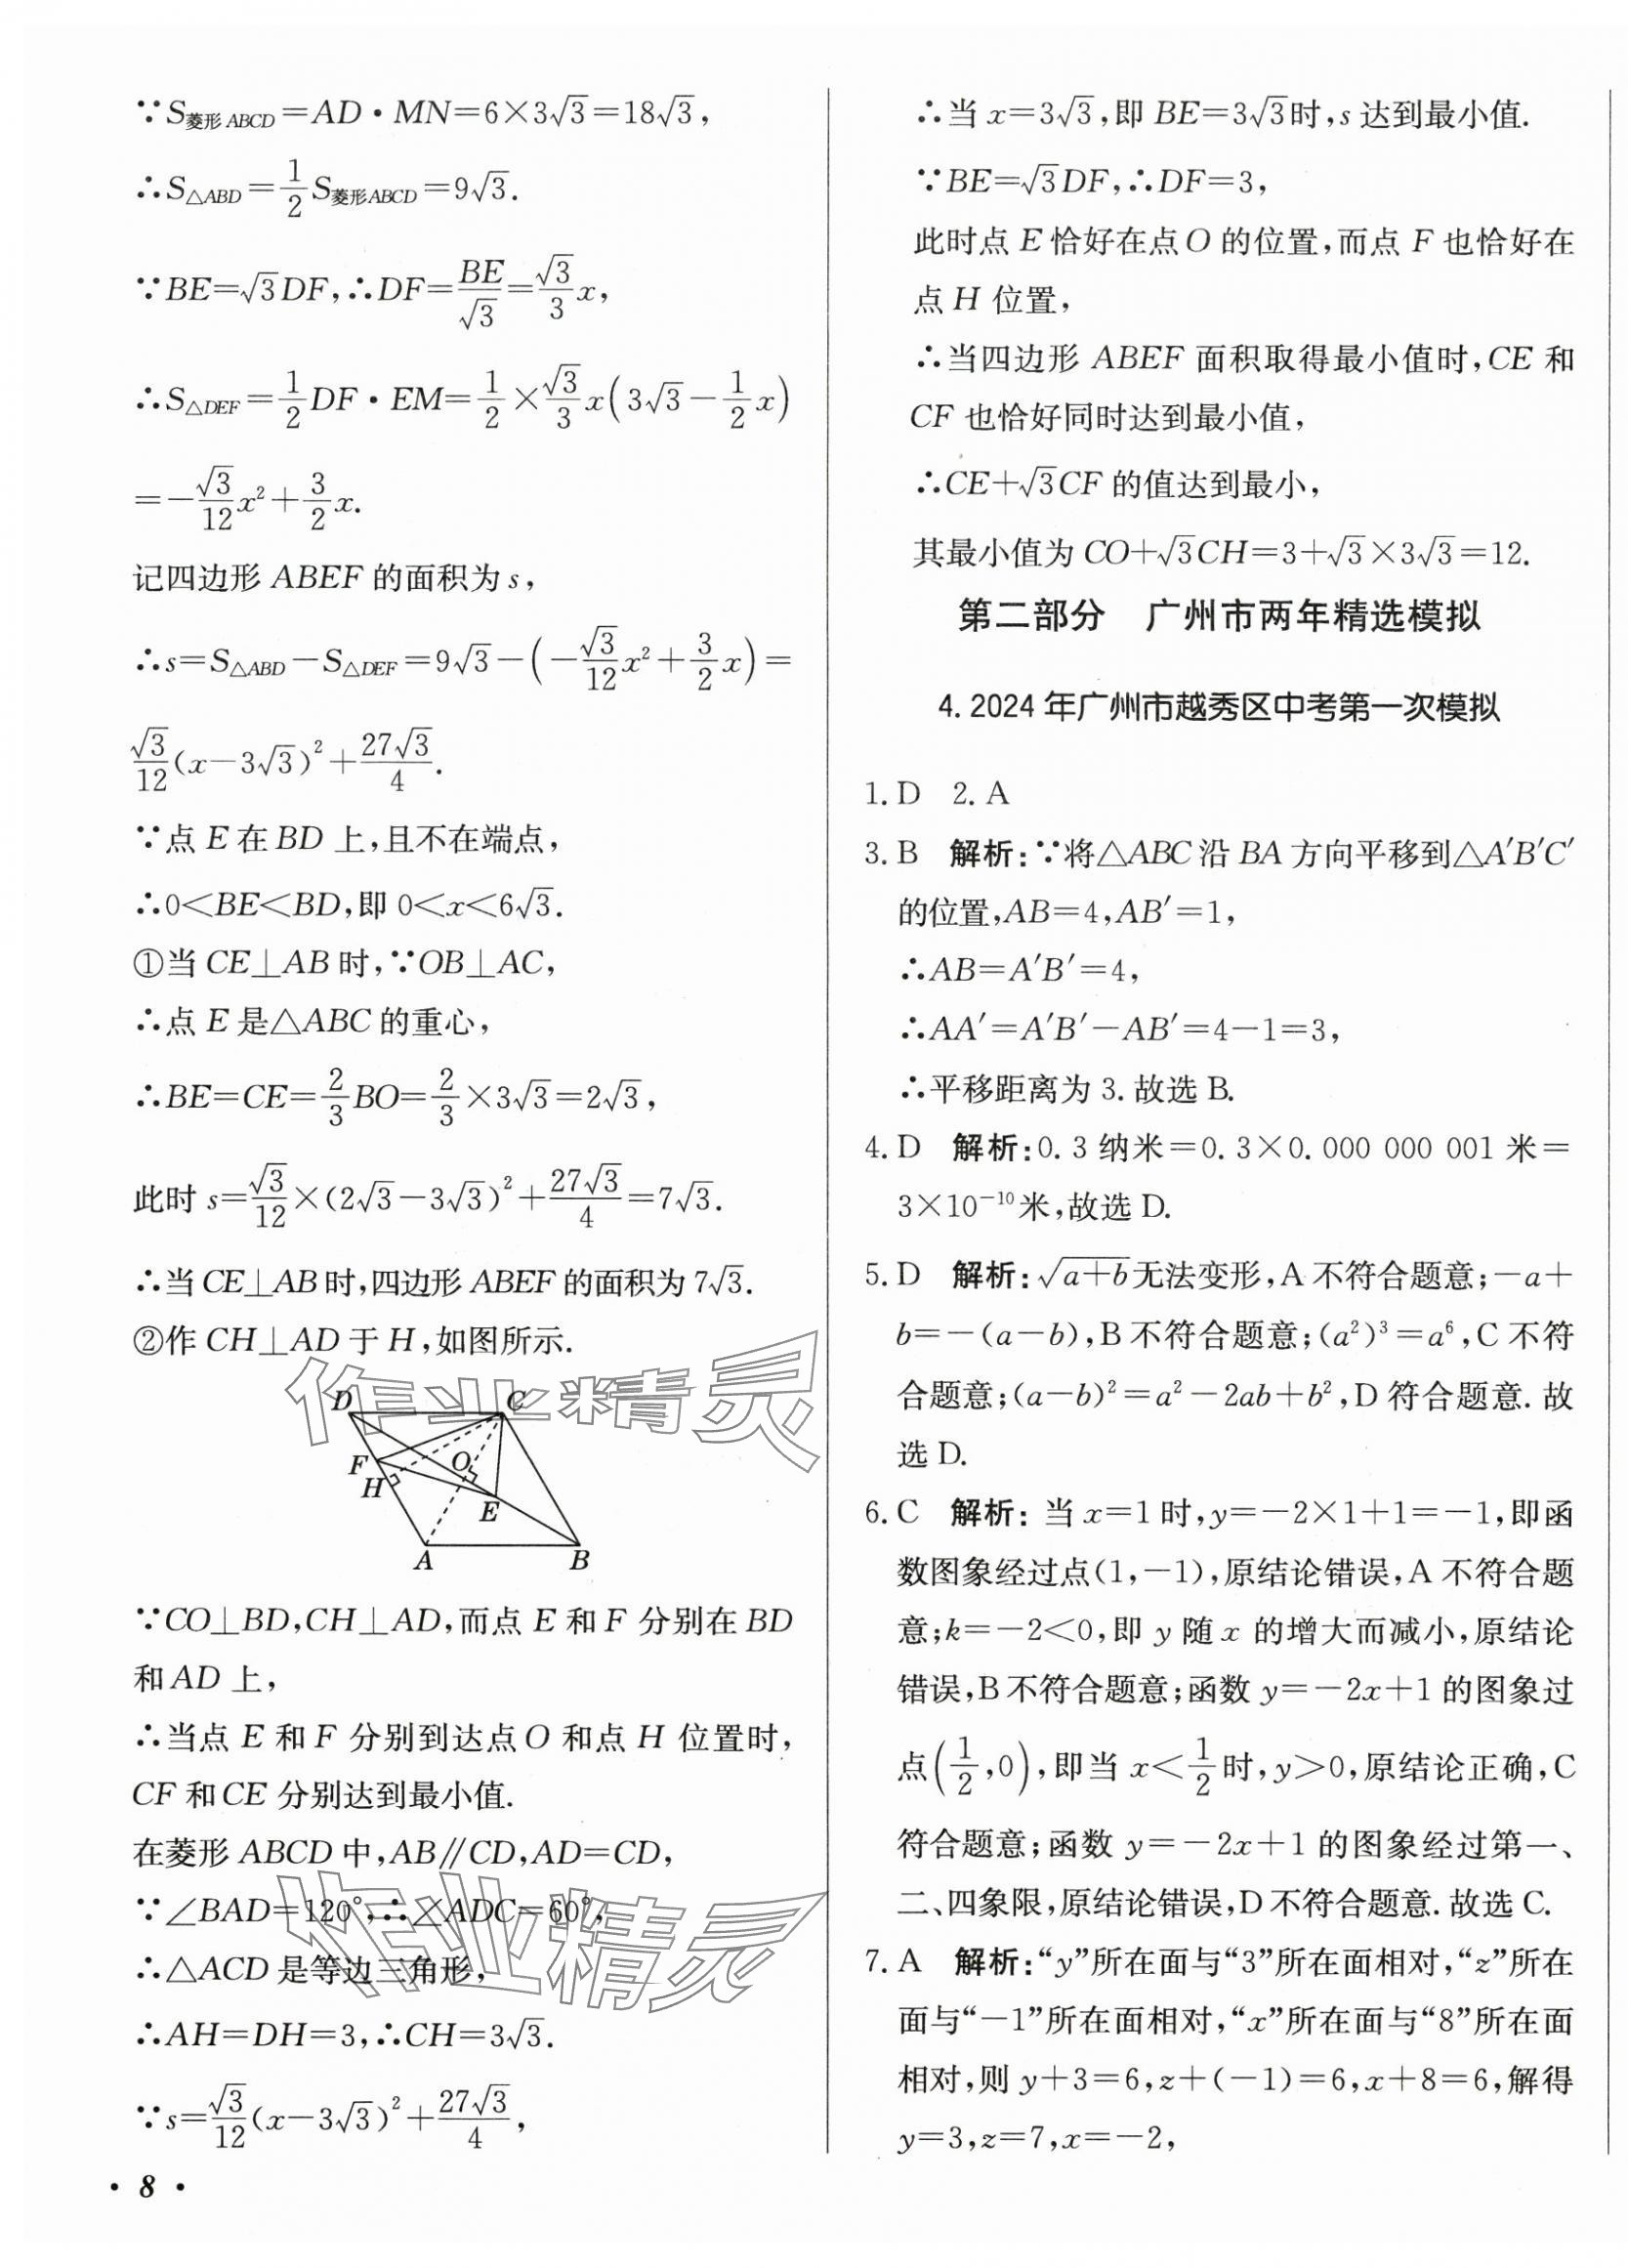 ∵S菱形ABCD=AD·MN=6×3√3=18√3,
∴S△ABD=1/2 S菱形ABCD=9√3.
∵BE=√3DF,∴DF=BE/√3=√3/3 x,
∴S△DEF=1/2 DF·EM=1/2×√3/3 x(3√3-1/2 x)
=-√3/12 x²+3/2 x.
记四边形 ABEF 的面积为 s,
∴s=S△ABD-S△DEF=9√3-(-√3/12 x²+3/2 x)=
√3/12(x-3√3)²+27√3/4.
∵点 E 在 BD 上,且不在端点,
∴0<BE<BD,即 0<x<6√3.
①当 CE⊥AB 时,∵OB⊥AC,
∴点 E 是△ABC 的重心,
∴BE=CE=2/3 BO=2/3×3√3=2√3,
此时 s=√3/12×(2√3-3√3)²+27√3/4=7√3.
∴当 CE⊥AB 时,四边形 ABEF 的面积为 7√3.
②作 CH⊥AD 于 H,如图所示.
D
C
F
H
O
E
A
B
∵CO⊥BD,CH⊥AD,而点 E 和 F 分别在 BD
和 AD 上,
∴当点 E 和 F 分别到达点 O 和点 H 位置时,
CF 和 CE 分别达到最小值.
在菱形 ABCD 中,AB∥CD,AD=CD,
∵∠BAD=120°,∴∠ADC=60°,
∴△ACD 是等边三角形,
∴AH=DH=3,∴CH=3√3.
∵s=√3/12(x-3√3)²+27√3/4,
· 8 ·
∴当 x=3√3,即 BE=3√3时,s 达到最小值.
∵BE=√3DF,∴DF=3,
此时点 E 恰好在点 O 的位置,而点 F 也恰好在
点 H 位置,
∴当四边形 ABEF 面积取得最小值时,CE 和
CF 也恰好同时达到最小值,
∴CE+√3CF 的值达到最小,
其最小值为 CO+√3CH=3+√3×3√3=12.
第二部分 广州市两年精选模拟
4. 2024 年广州市越秀区中考第一次模拟
1. D 2. A
3. B 解析:∵将△ABC 沿 BA 方向平移到△A′B′C′
的位置,AB=4,AB′=1,
∴AB=A′B′=4,
∴AA′=A′B′-AB′=4-1=3,
∴平移距离为 3. 故选 B.
4. D 解析:0. 3 纳米=0. 3×0. 000 000 001 米=
3×10⁻¹⁰米,故选 D.
5. D 解析:√(a+b)无法变形,A 不符合题意;-a+
b=-(a-b),B 不符合题意;(a²)³=a⁶,C 不符
合题意;(a-b)²=a²-2ab+b²,D 符合题意. 故
选 D.
6. C 解析: 当 x=1 时,y=-2×1+1=-1,即函
数图象经过点(1,-1),原结论错误,A 不符合题
意;k=-2<0,即 y 随 x 的增大而减小,原结论
错误,B 不符合题意;函数 y=-2x+1 的图象过
点(1/2,0),即当 x<1/2时,y>0,原结论正确,C
符合题意;函数 y=-2x+1 的图象经过第一、
二、四象限,原结论错误,D 不符合题意. 故选 C.
7. A 解析:“y”所在面与“3”所在面相对,“z”所在
面与“-1”所在面相对,“x”所在面与“8”所在面
相对,则 y+3=6,z+(-1)=6,x+8=6,解得
y=3,z=7,x=-2,
作业精灵
作业精灵